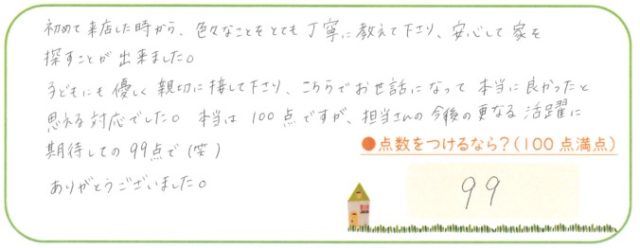 初めて来店した時から、色々なことをとても丁寧に教えて下さり、安心して家を
探すことが出来ました。
子どもにも優しく親切に接して下さり、こちらでお世話になって本当に良かったと
思える対応でした。本当は100点ですが、担当さんの今後の更なる活躍に
期待しての99点で(笑)
ありがとうございました。
●点数をつけるなら?(100点満点)
99